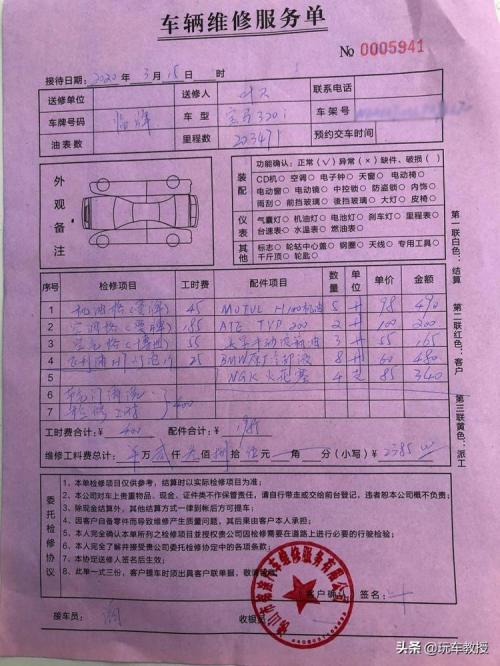 车辆维修服务单
No 0005941
接待日期: 2020 年 3 月 15 日 时
送修单位 送修人 联系电话
车牌号码 临牌 车型 宝马320i 车架号
油表数 里程数 203471 预约交车时间
外观备注
装配
功能确认: 正常 (√) 异常 (×) 缺件、破损 ( )
CD机○ 空调○ 电子钟○ 天窗○ 电动椅○
电动窗○ 电动镜○ 中控锁○ 防盗锁○ 内饰○
雨刮○ 前挡玻璃○ 後挡玻璃○ 大灯○ 皮椅○
仪表
气囊灯○ 机油灯○ 电池灯○ 刹车灯○ 里程表○
台速表○ 水温表○ 燃油表○
其他
标志○ 轮轱中心盖○ 钢圈○ 天线○ 专用工具○
千斤顶○ 轮匙○
序号 检修项目 工时费 配件项目 数量 单位 单价 金额
1 机油格 45 MOTUL H100机油 5 升 98 490
2 空调格 185 ATE TYP 200 2 升 100 200
3 空气格 55 3 升 55 165
4 25 BMW 8 60 480
5 NGK 火花塞 4 支 85 340
6 400
7
工时费合计:¥ 400 配件合计:¥
维修工料费总计: 万 贰 仟 佰 捌 拾 伍 元 角 分 (小写) ¥ 2385
委托检修协议
1、本单检修项目仅供参考,结算时以实际检修项目为准;
2、本公司对车上贵重物品、现金、证件类不作保管责任,请自行带走或交给前台登记,违者恕本公司概不负责;
3、除现金结算外,其他结算方式一律到帐后方可提车;
4、因客户自备零件而导致维修产生质量问题,其后果由客户本人承担;
5、本人完全确认本单所列之检修项目并授权贵公司因检修需要在道路上进行必要的行驶检验;
6、本人完全了解并接受贵公司委托检修协定中的各项条款;
7、本协定送修人签名后生效;
8、此单一式三份,客户提车时须出具客户联单据,敬请
客户确认 签名:
接车员: 收银员
汽车维修服务有限公司
第一联白色:结算
第二联红色:客户
第三联黄色:派工
头条 @玩车教授